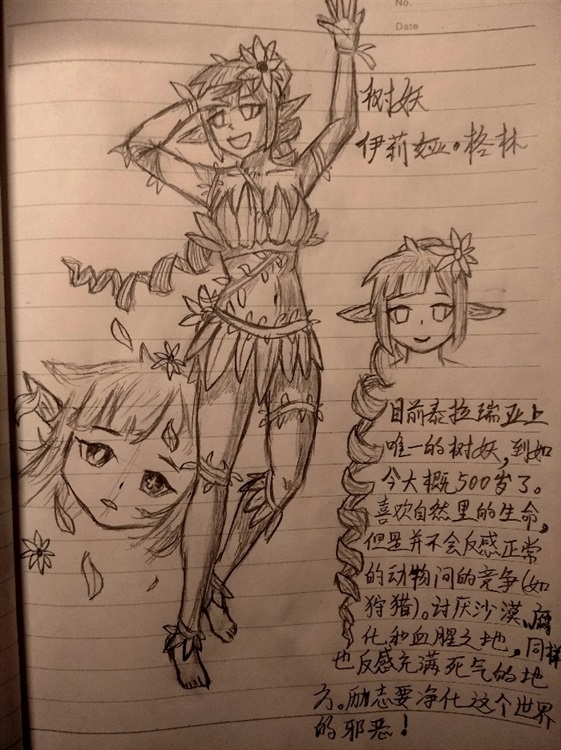 No.
Date
树妖
伊莉娅。格林
目前泰拉瑞亚上
唯一的树妖，到如
今大概500岁了。
喜欢自然里的生命，
但是并不会反感正常
的动物间的竞争（如
狩猎）。讨厌沙漠、腐
化和血腥之地，同样
也反感充满死气的地
方。励志要净化这个世界
的邪恶！